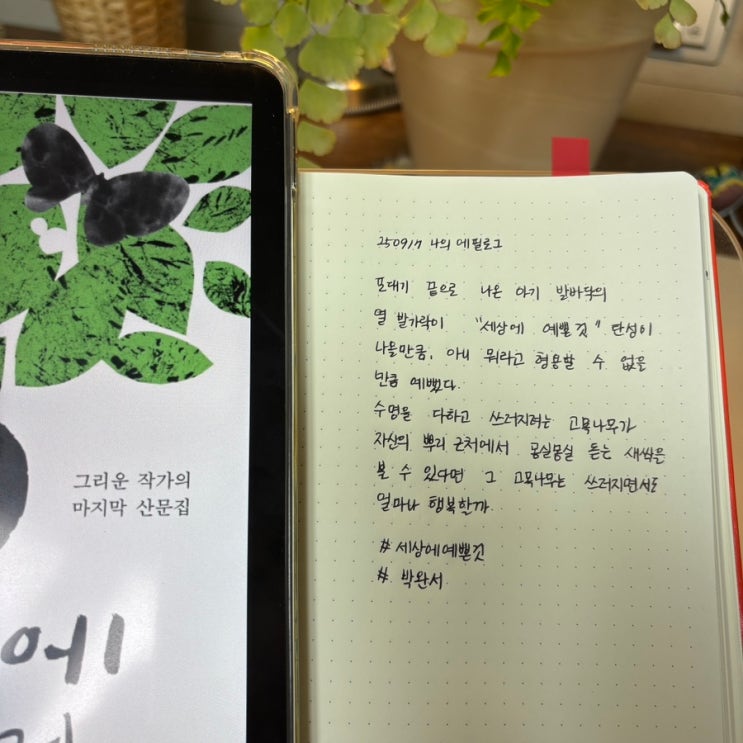 그리운 작가의
마지막 산문집
에
250917 나의 에필로그
포대기 끝으로 나온 아기 발바닥의
열 발가락이 "세상에 예쁜 것" 탄성이
나올만큼, 아니 뭐라고 형용할 수 없을
만큼 예뻤다.
수명을 다하고 쓰러지려는 고목나무가
자신의 뿌리 근처에서 몽실몽실 돋는 새싹을
볼 수 있다면 그 고목나무는 쓰러지면서도
얼마나 행복할까
#세상에예쁜것
# 박완서